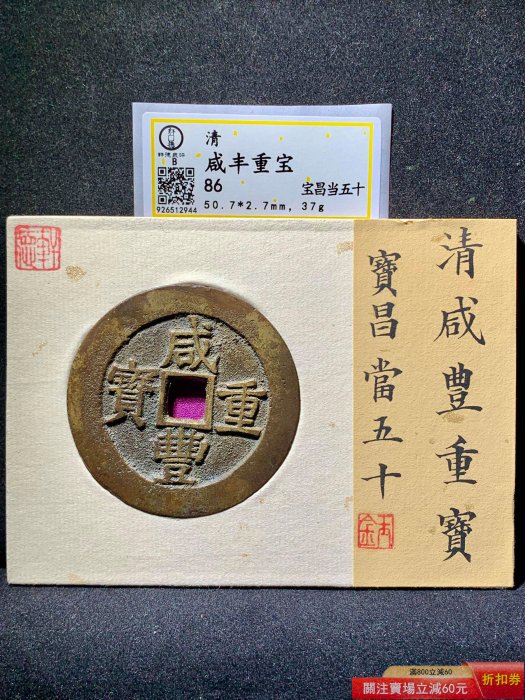 清
B
咸丰重宝
86
宝昌当五十
926512944
50.7*2.7mm, 37g
咸豐重寶
清咸豐重寶
寶昌當五十
滿800立減60
關注賣場立減60元
折扣券